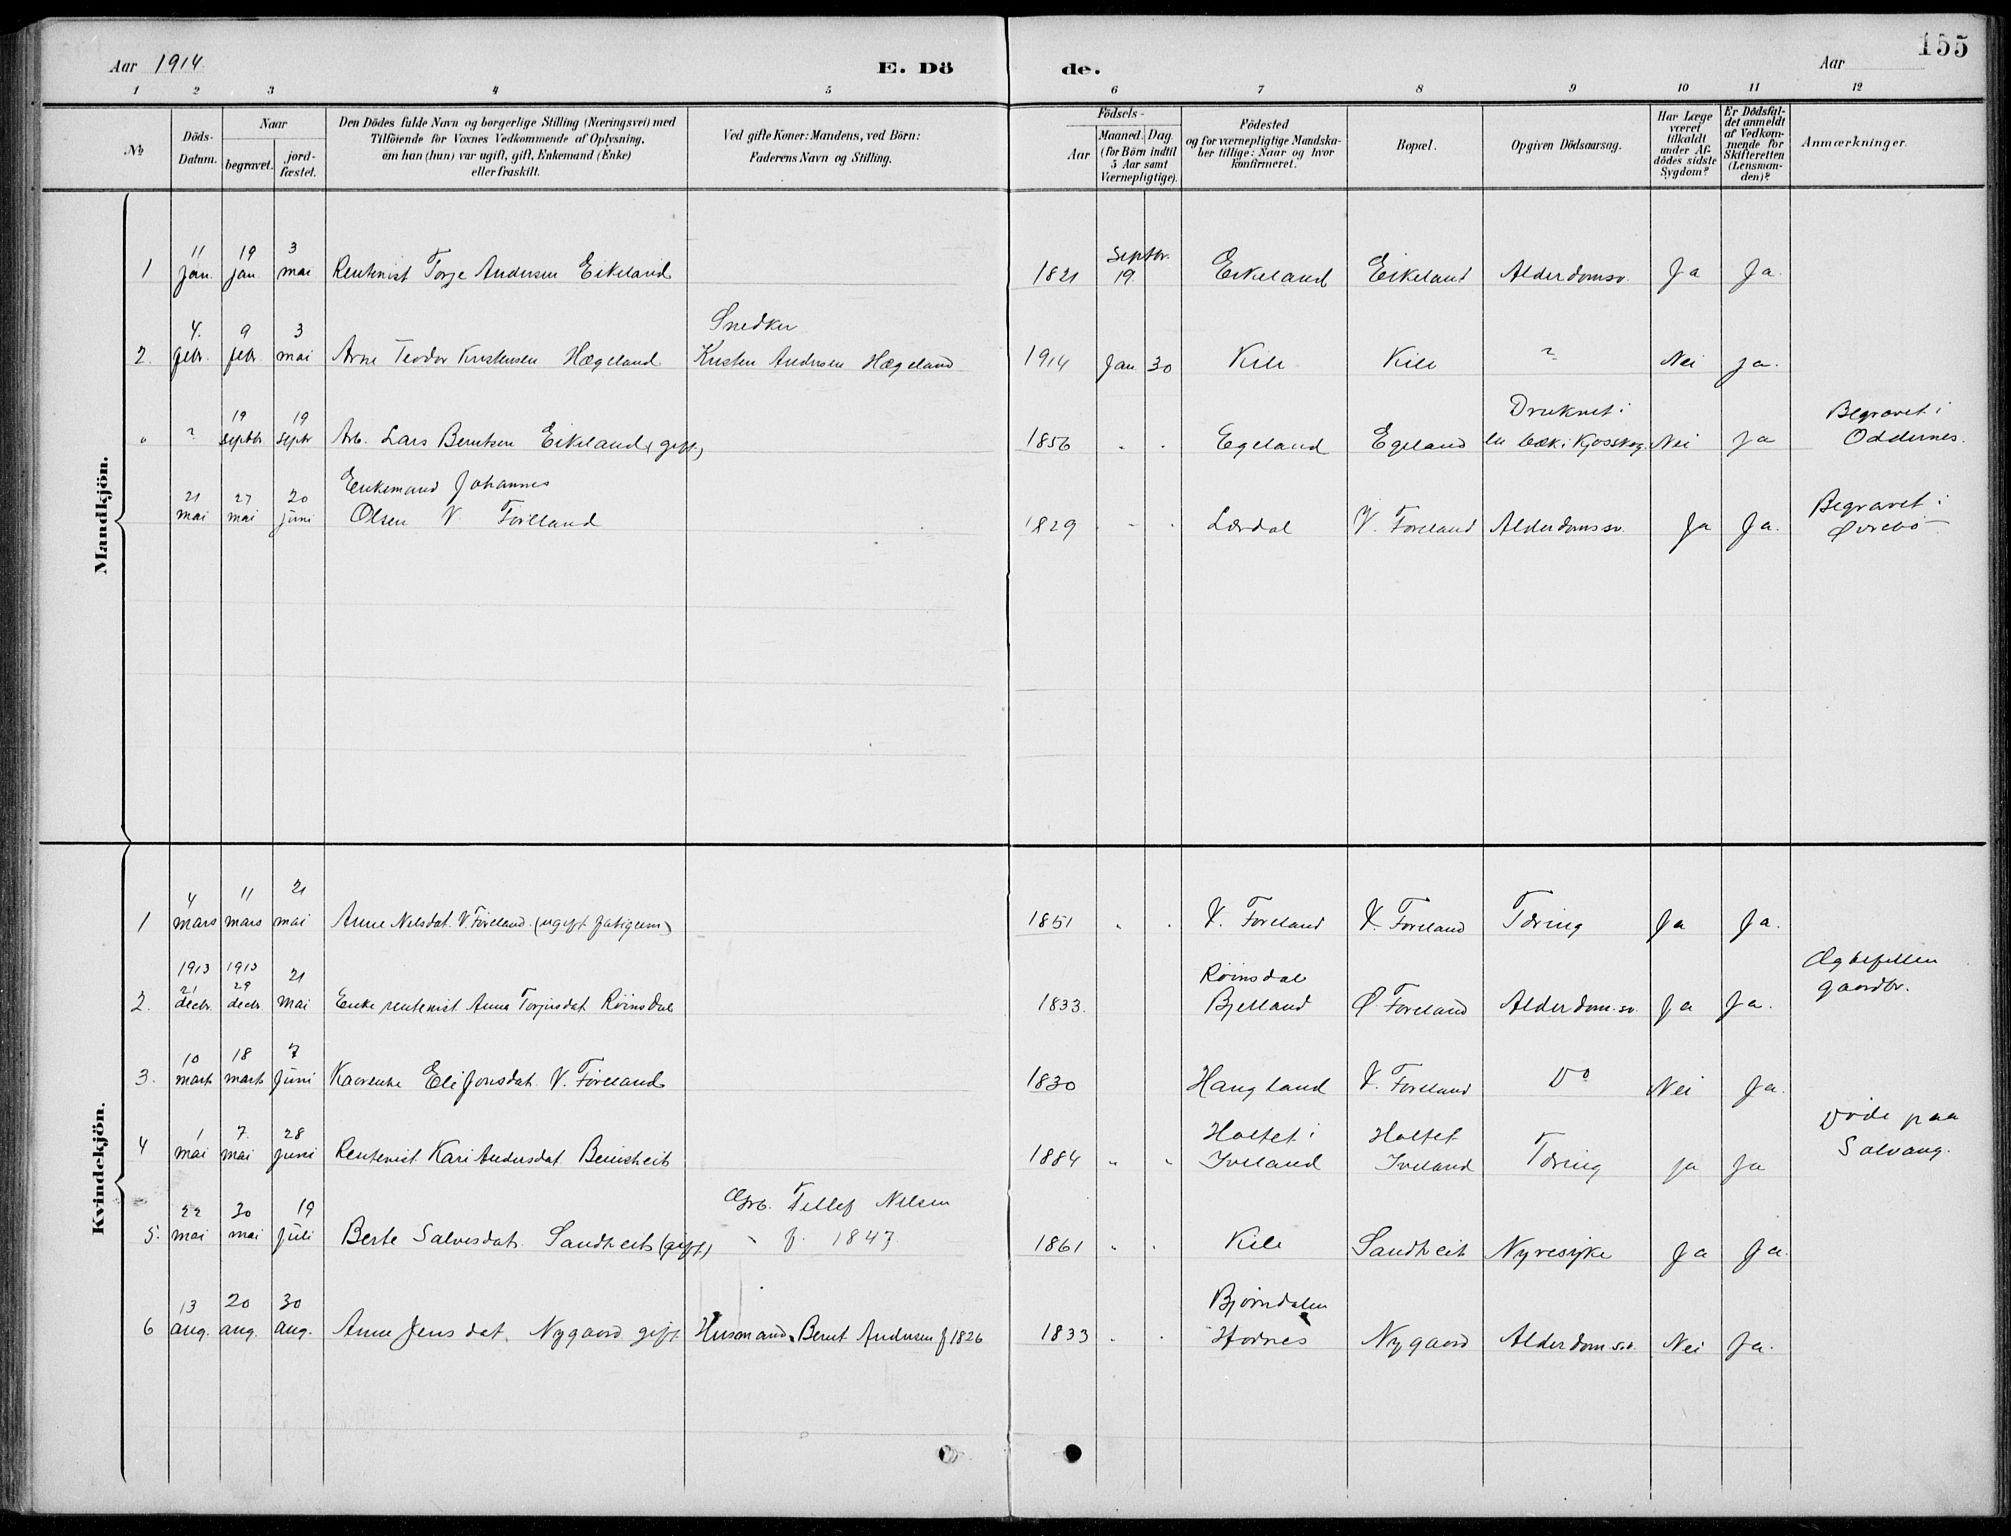 155
Aar 1914
E. Dö
de.
Aar
1 2 3 4 5 6 7 8 9 10 11 12
No
Döds-Datum.
Naar
begravet.
jord-fæstet.
Den Dödes fulde Navn og borgerlige Stilling (Næringsvei) med
Tilföiende for Voxnes Vedkommende af Oplysning,
om han (hun) var ugift, gift, Enkemand (Enke)
eller fraskilt.
Ved gifte Koner: Mandens, ved Börn:
Faderens Navn og Stilling.
Födsels-
Aar
Maaned. Dag.
(for Börn indtil
5 Aar samt
Værnepligtige).
Födested
og for værnepligtige Mandska-
ber tillige: Naar og hvor
konfirmeret.
Bopæl.
Opgiven Dödsaarsag.
Har Læge
været
tilkaldt
under Af-
dödes sidste
Sygdom?
Er Dödsfal-
det anmeldt
af Vedkom-
mende for
Skifteretten
(Lensman-
den)?
Anmærkninger.
Mandkjön.
11 19 3 Septbr.
1 jan. jan. mai Rentenist Torje Andersen Eikeland 1821 19. Eikeland Eikeland Alderdomssv. Ja Ja.
4. 9 3 Snedker
2. febr. febr. mai Arne Teodor Kristensen Hægeland Kristen Andersen Hægeland 1914 Jan 30 Kile Kile ? Nei ja.
19 19 Druknet i Begravet i
" ? septbr septbr Arb. Lars Berntsen Eikeland (gift) 1856 " " Egeland Egeland en bæk i Kjosskog. Nei ja Oddernes.
21 27 20 Enkemand Johannes Begravet i
mai mai juni Olsen V. Føreland 1829 " " Lærdal V. Føreland Alderdomssv. Ja Ja. Øvrebø
Kvindekjön.
4 11 21
1 mars mars mai Anne Nilsdat. V. Føreland (ugift fatiglem) 1851 " " V. Føreland V. Føreland Tæring Ja Ja.
1913 1913 21 Røinsdal
21 29 gaardbr.
2. decbr. decbr. mai Enke rentenist Anna Torjusdat Røinsdal 1833. Bjelland Ø. Føreland Alderdom.sv. Ja Ja.
10 18 7
3. marts marts Juni Kaarenke Eli Jonsdat. V. Føreland 1830 Haugland V. Føreland Do Nei Ja.
1 7. 28 Holtet i Holtet Døde paa
4 mai mai juni Rentenist Kari Andersdat. Beinsheia 1884 " " Iveland Iveland Tæring ja ja Solvang.
22 30 19 Grb. Tellef Nilsen
5. mai mai juli Berte Salvesdat. Sandheia (gift) " f. 1847 1861 " " Kile Sandheia Nyresyke Ja Ja.
13 20 30 Bjørndalen
6 aug. aug. aug. Anne Jensdat. Nygaard gift Husmand Bernt Andersen f 1826 1833 " " Hornes Nygaard Alderdom.sv. Nei Ja.